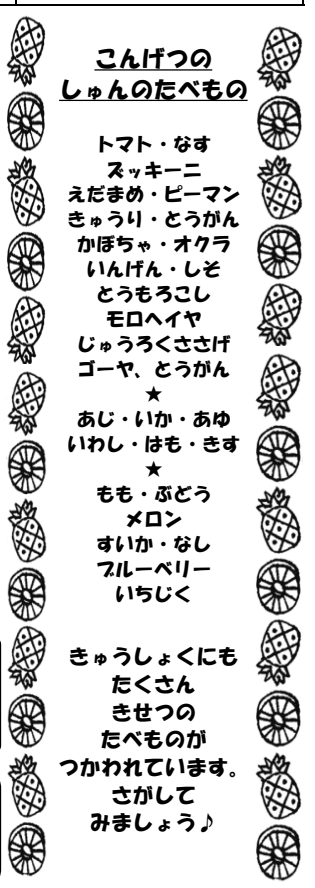 こんげつの
しゅんのたべもの
トマト・なす
ズッキーニ
えだまめ・ピーマン
きゅうり・とうがん
かぼちゃ・オクラ
いんげん・しそ
とうもろこし
モロヘイヤ
じゅうろくささげ
ゴーヤ、とうがん
★
あじ・いか・あゆ
いわし・はも・きす
★
もも・ぶどう
メロン
すいか・なし
ブルーベリー
いちじく
きゅうしょくにも
たくさん
きせつの
たべものが
つかわれています。
さがして
みましょう♪